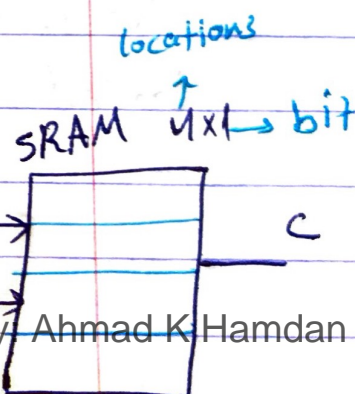 locations
SRAM 4x1 → bit
C
y: Ahmad K Hamdan